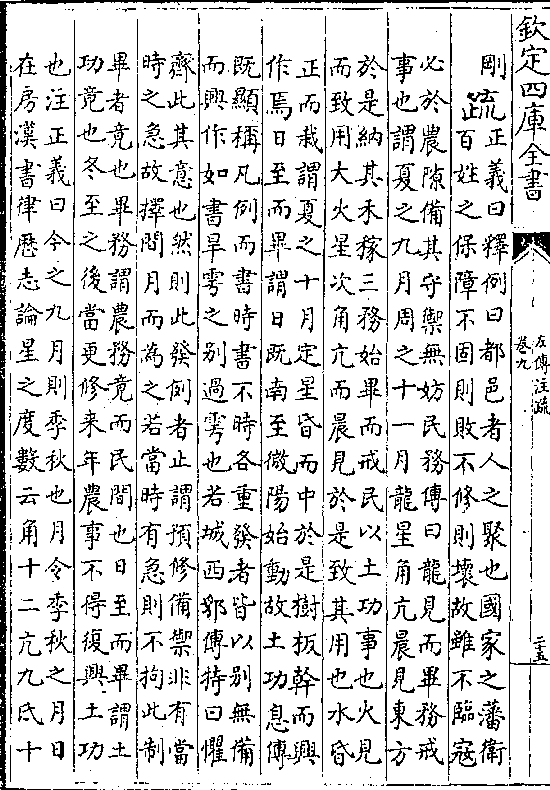 欽定四庫全書
左傳注疏
卷九
二十五
剛疏正義曰釋例曰都邑者人之聚也國家之藩衛
百姓之保障不固則敗不修則壞故雖不臨寇
必於農隙備其守禦無妨民務傳曰龍見而畢務戒
事也謂夏之九月周之十一月龍星角亢晨見東方
於是納其禾稼三務始畢而戒民以土功事也火見
而致用大火星次角亢而晨見於是致其用也水昏
正而栽謂夏之十月定星昏而中於是樹板幹而興
作焉日至而畢謂日既南至微陽始動故土功息傳
既顯稱凡例而書時書不時各重發者皆以別無備
而興作如書旱雩之別過雩也若城西郛傳特曰懼
齊此其意也然則此發例者止謂預修備禦非有當
時之急故擇間月而為之若當時有急則不拘此制
畢者竟也畢務謂農務竟而民間也日至而畢謂土
功竟也冬至之後當更修来年農事不得復興土功
也注正義曰今之九月則季秋也月令季秋之月日
在房漢書律歷志論星之度數云角十二亢九氐十